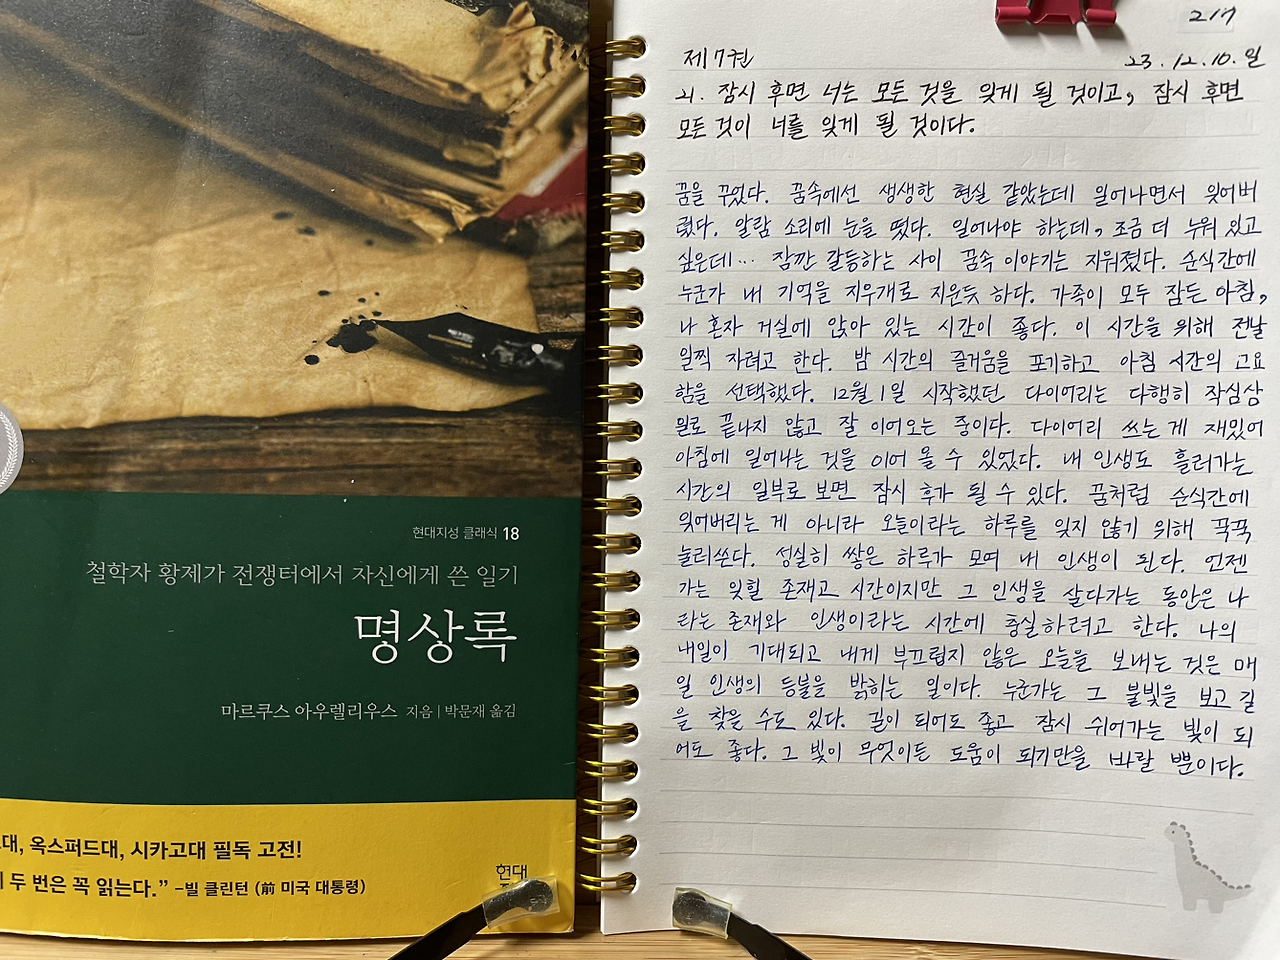 현대지성 클래식 18
철학자 황제가 전쟁터에서 자신에게 쓴 일기
명상록
마르쿠스 아우렐리우스 지음 | 박문재 옮김
대, 옥스퍼드대, 시카고대 필독 고전!
두 번은 꼭 읽는다.” –빌 클린턴 (前 미국 대통령)
현대
217
제7권 23.12.10.일
21. 잠시 후면 너는 모든 것을 잊게 될 것이고, 잠시 후면
모든 것이 너를 잊게 될 것이다.
꿈을 꾸었다. 꿈속에선 생생한 현실 같았는데 일어나면서 잊어버
렸다. 알람 소리에 눈을 떴다. 일어나야 하는데, 조금 더 누워 있고
싶은데… 잠깐 갈등하는 사이 꿈속 이야기는 지워졌다. 순식간에
누군가 내 기억을 지우개로 지운듯 하다. 가족이 모두 잠든 아침,
나 혼자 거실에 앉아 있는 시간이 좋다. 이 시간을 위해 전날
일찍 자려고 한다. 밤 시간의 즐거움을 포기하고 아침 시간의 고요
함을 선택했다. 12월 1일 시작했던 다이어리는 다행히 작심삼
일로 끝나지 않고 잘 이어오는 중이다. 다이어리 쓰는 게 재밌어
아침에 일어나는 것을 이어 올 수 있었다. 내 인생도 흘러가는
시간의 일부로 보면 잠시 후가 될 수 있다. 꿈처럼 순식간에
잊어버리는 게 아니라 오늘이라는 하루를 잊지 않기 위해 꾹꾹
눌러쓴다. 성실히 쌓은 하루가 모여 내 인생이 된다. 언젠
가는 잊힐 존재고 시간이지만 그 인생을 살다가는 동안은 나
라는 존재와 인생이라는 시간에 충실하려고 한다. 나의
내일이 기대되고 내게 부끄럽지 않은 오늘을 보내는 것은 매
일 인생의 등불을 밝히는 일이다. 누군가는 그 불빛을 보고 길
을 찾을 수도 있다. 길이 되어도 좋고 잠시 쉬어가는 빛이 되
어도 좋다. 그 빛이 무엇이든 도움이 되기만을 바랄 뿐이다.